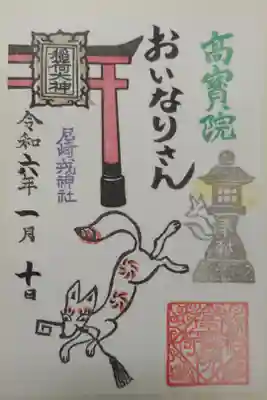 高寳院
おいなりさん
稲荷大神
尼崎戎神社
奉献
令和六年 一月 十日